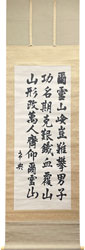 爾靈山嶮豈難攀男子
功名期克艱鐵血覆山
山形改萬人齊仰爾靈山
希典